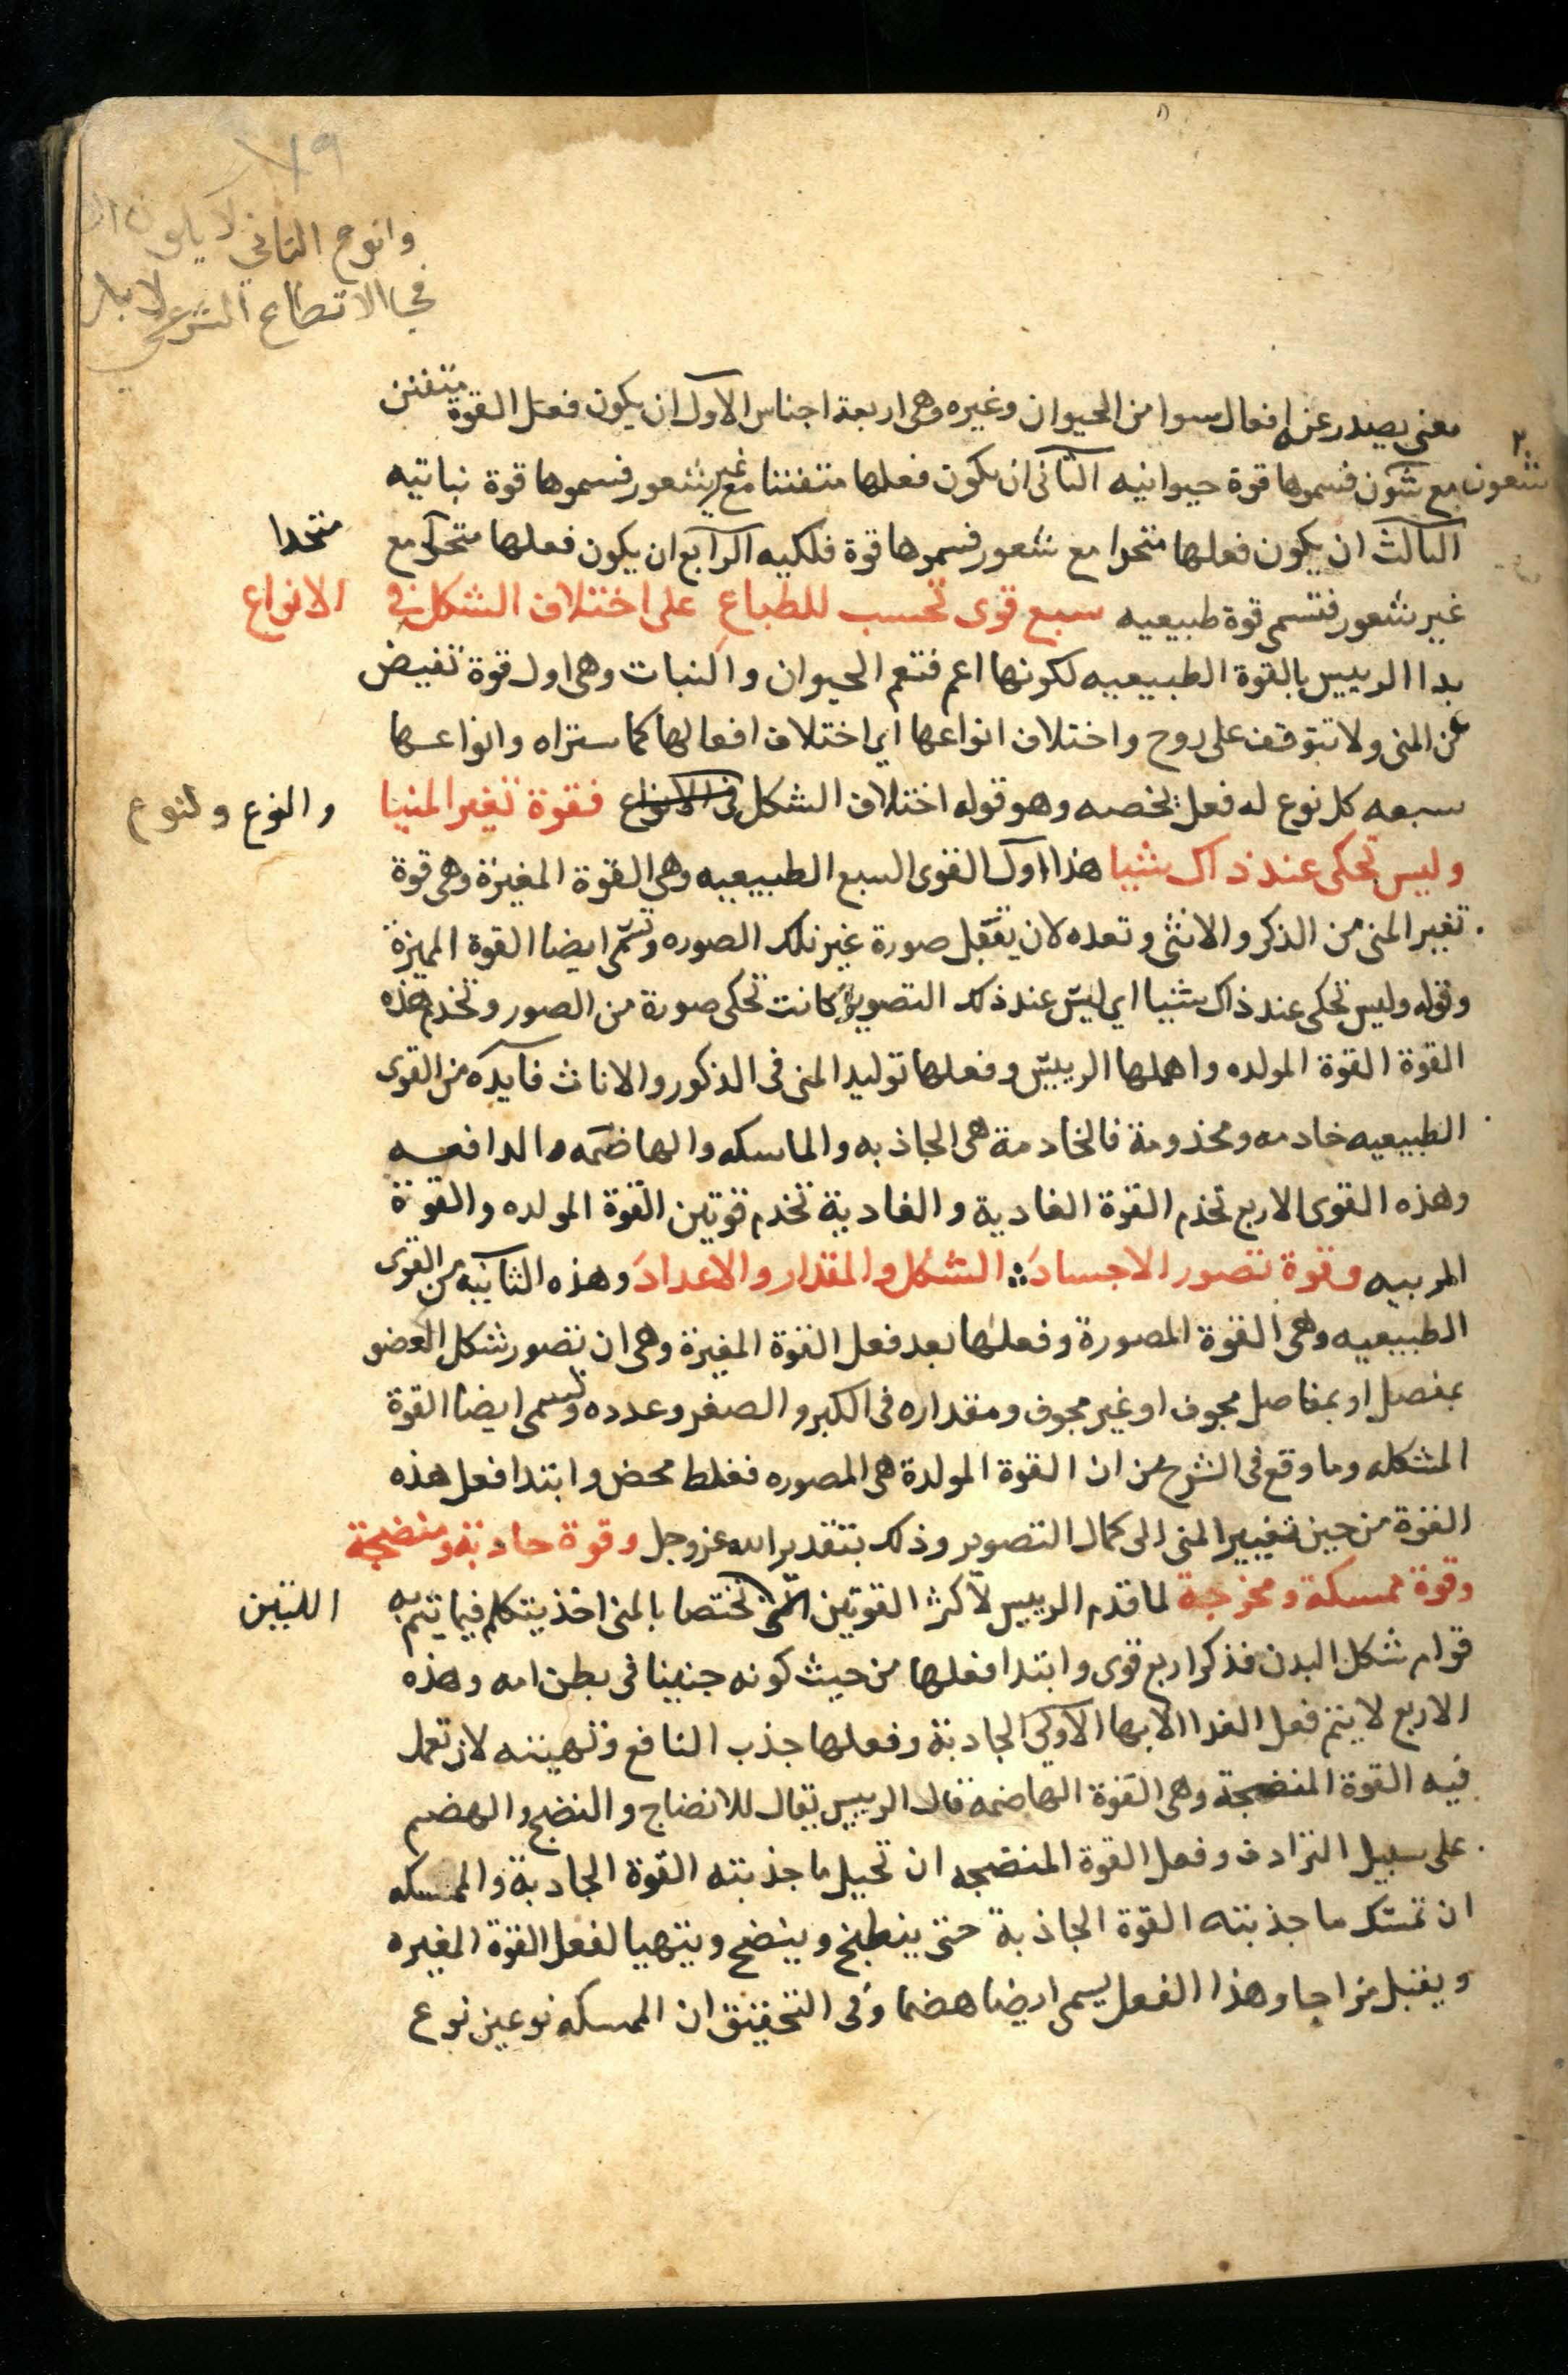 ٧٩
وانوح الثاني لا يكون
الانطاع الشرعي لا
معنى يصدر عنه افعال سوا من الحيوان وغيره وهى اربعة اجناس الاول ان يكون فعل القوة متفنن
مع شكون فسموها قوة حيوانيه الثانى ان يكون فعلها متفننا مع غير شعور فسموها قوة نباتيه
شعور
الثالث ان يكون فعلها متحدا مع شعور فسموها قوة فلكيه الرابع ان يكون فعلها متحدا مع
متحدا
غير شعور فتسمى قوة طبيعيه سبع قوى تحسب للطباع على اختلاف الشكل فى الانواع
بدا الرييس بالقوة الطبيعيه لكونها اعم فتعم الحيوان والنبات وهى اول قوة تفيض
عن المنى ولا تتوقف على روح واختلاف انواعها اي اختلاف افعالها كما ستراه وانواعها
سبعه كل نوع له فعل يخصه وهو قوله اختلاف الشكل فى الانواع فقوة تغير المنيا
والنوع ولنوع
وليس تحكى عند ذاك شيا هذا اول القوى السبع الطبيعيه وهى القوة المغيرة وهى قوة
تغير المنى من الذكر والانثى وتعده لان يقبل صورة غير تلك الصوره وتسمى ايضا القوة المميزة
وقوله وليس تحكى عند ذاك شيا اي ليس عند ذلك التصوير كانت تحكى صورة من الصور وتخدم هذه
القوة القوة المولده واهملها الرييس وفعلها توليد المنى فى الذكور والاناث فآيده من القوى
الطبيعيه خادمه ومخدومة فالخادمة هى الجاذبه والماسكه والهاضمه والدافعه
وهذه القوى الاربع تخدم القوة الغادية والغادية تخدم قوتين القوة المولده والقوة
المربيه وقوة تصور الاجسادَ الشكل والمقدار والاعدادَ وهذه الثانيه من القوى
الطبيعيه وهى القوة المصورة وفعلها بعد فعل القوة المغيرة وهى ان تصور شكل العضو
بمفصل او بمفاصل مجوف او غير مجوف ومقداره فى الكبر والصغر وعدده وتسمى ايضا القوة
المشكله وما وقع فى الشرح من ان القوة المولدة هى المصوره فغلط محض وابتدا فعل هذه
القوة من حين تغيير المنى الى كمال التصوير وذلك بتقدير الله عز وجل وقوة جادبة ومنضجة
وقوة ممسكة ومخرجة لما قدم الرييس لاكثر القوتين التى تختصا بالمنى اخذ يتكلم فيما يتم به
اللتين
قوام شكل البدن فذكر اربع قوى وابتدا فعلها من حيث كونه جنينا فى بطن امه وهذه
الاربع لا يتم فعل الغدا الا بها الاولى الجادبة وفعلها جذب النافع وتهيته لان تعمل
فيه القوة المنضجة وهى القوة الهاضمه قال الرييس يقال للانضاج والنضج والهضم
على سبيل الترادف وفعل القوة المنضجه ان تحيل ما جذبته القوة الجادبة والممسكه
ان تمسك ما جذبته القوة الجاذبة حتى ينطبخ وينضج ويتهيا لفعل القوة المغيره
ويقبل مزاجا وهذا الفعل يسمى ايضا هضما وفى التحقيق ان الممسكه نوعين نوع